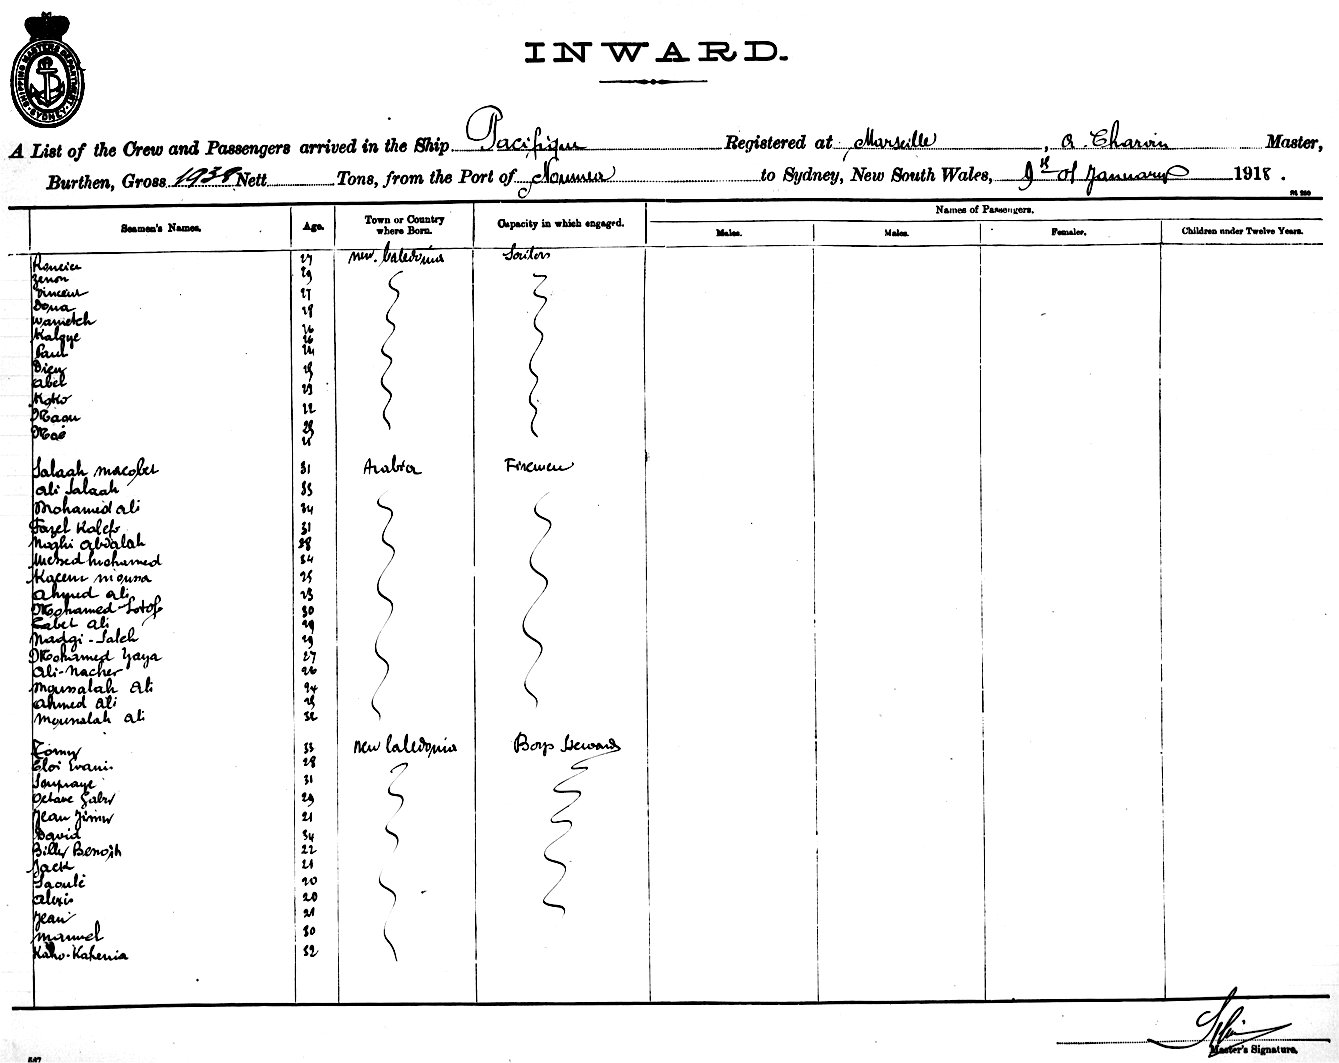 SHIPPING MASTERS DEPARTMENT SYDNEY
INWARD.
A List of the Crew and Passengers arrived in the Ship Pacifique Registered at Marseille, A. Charvin Master,
Burthen, Gross 1938 Nett Tons, from the Port of Noumea to Sydney, New South Wales, 9th of January 1918.
Seamen's Names. Age. Town or Country where Born. Capacity in which engaged. Names of Passengers.
Males. Males. Females. Children under Twelve Years.
27 New. Caledonia Sailors
Zenon 29
Vincent 27
Dona
Wametch
Kalque
Paul
Abel 23
Koko 22
Maou
Maé
Salaah Macobet 31 Arabia Firemen
Ali Salaah 33
Mohamed Ali 34
Fazel Kaleb 31
Moghi Abdalah 28
Messed Mohamed 34
Kacem Moussa 25
Ahmed Ali 23
Mohamed 30
Ali 29
Nadgi-Saleh 29
Mohamed Yaya 27
Ali-Nacher 26
Mounalah Ali 24
Ahmed Ali 25
Mounalah Ali 32
Tomy 33 New Caledonia Boys Steward
Eloi 28
31
Octave 29
Jean Jimmy 21
David 34
Billy Benoit 22
Jack 21
Saoulé 20
Alexis 20
Jean 21
Manuel 30
Kaho-Kahenia 32
Master's Signature.